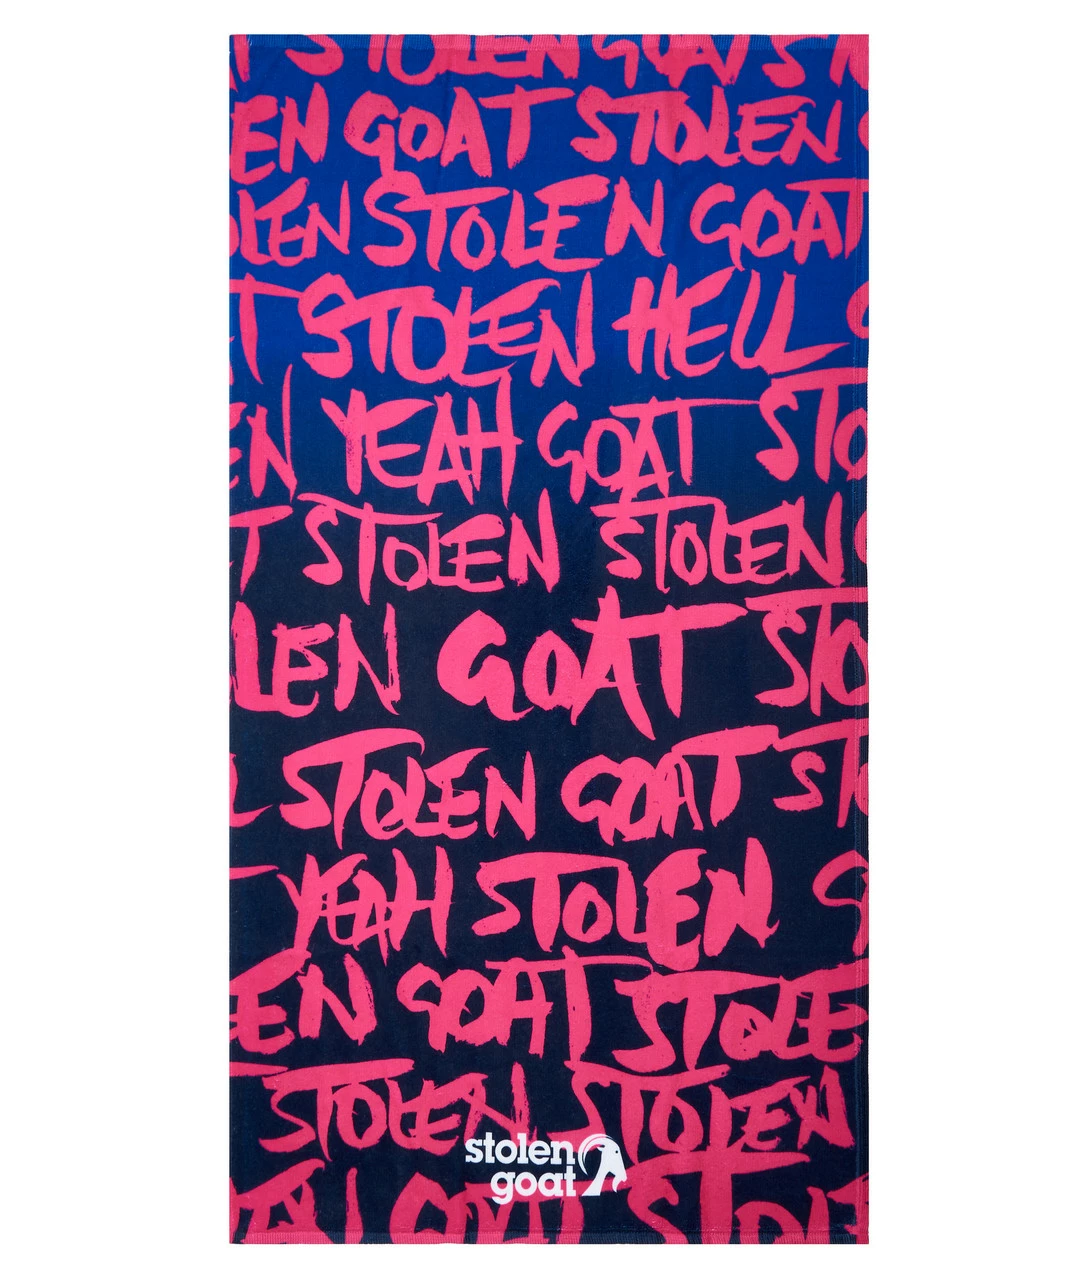 T STOLEN GOAT ST
EN GOAT STOLEN
OLEN STOLEN GOAT
T STOLEN HELL
EN YEAH GOAT STO
T STOLEN STOLEN
LEN GOAT STO
L STOLEN GOAT ST
YEAH STOLEN G
EN GOAT STOLE
STOLEN STOLEN
stolen
goat
GOAT STOL